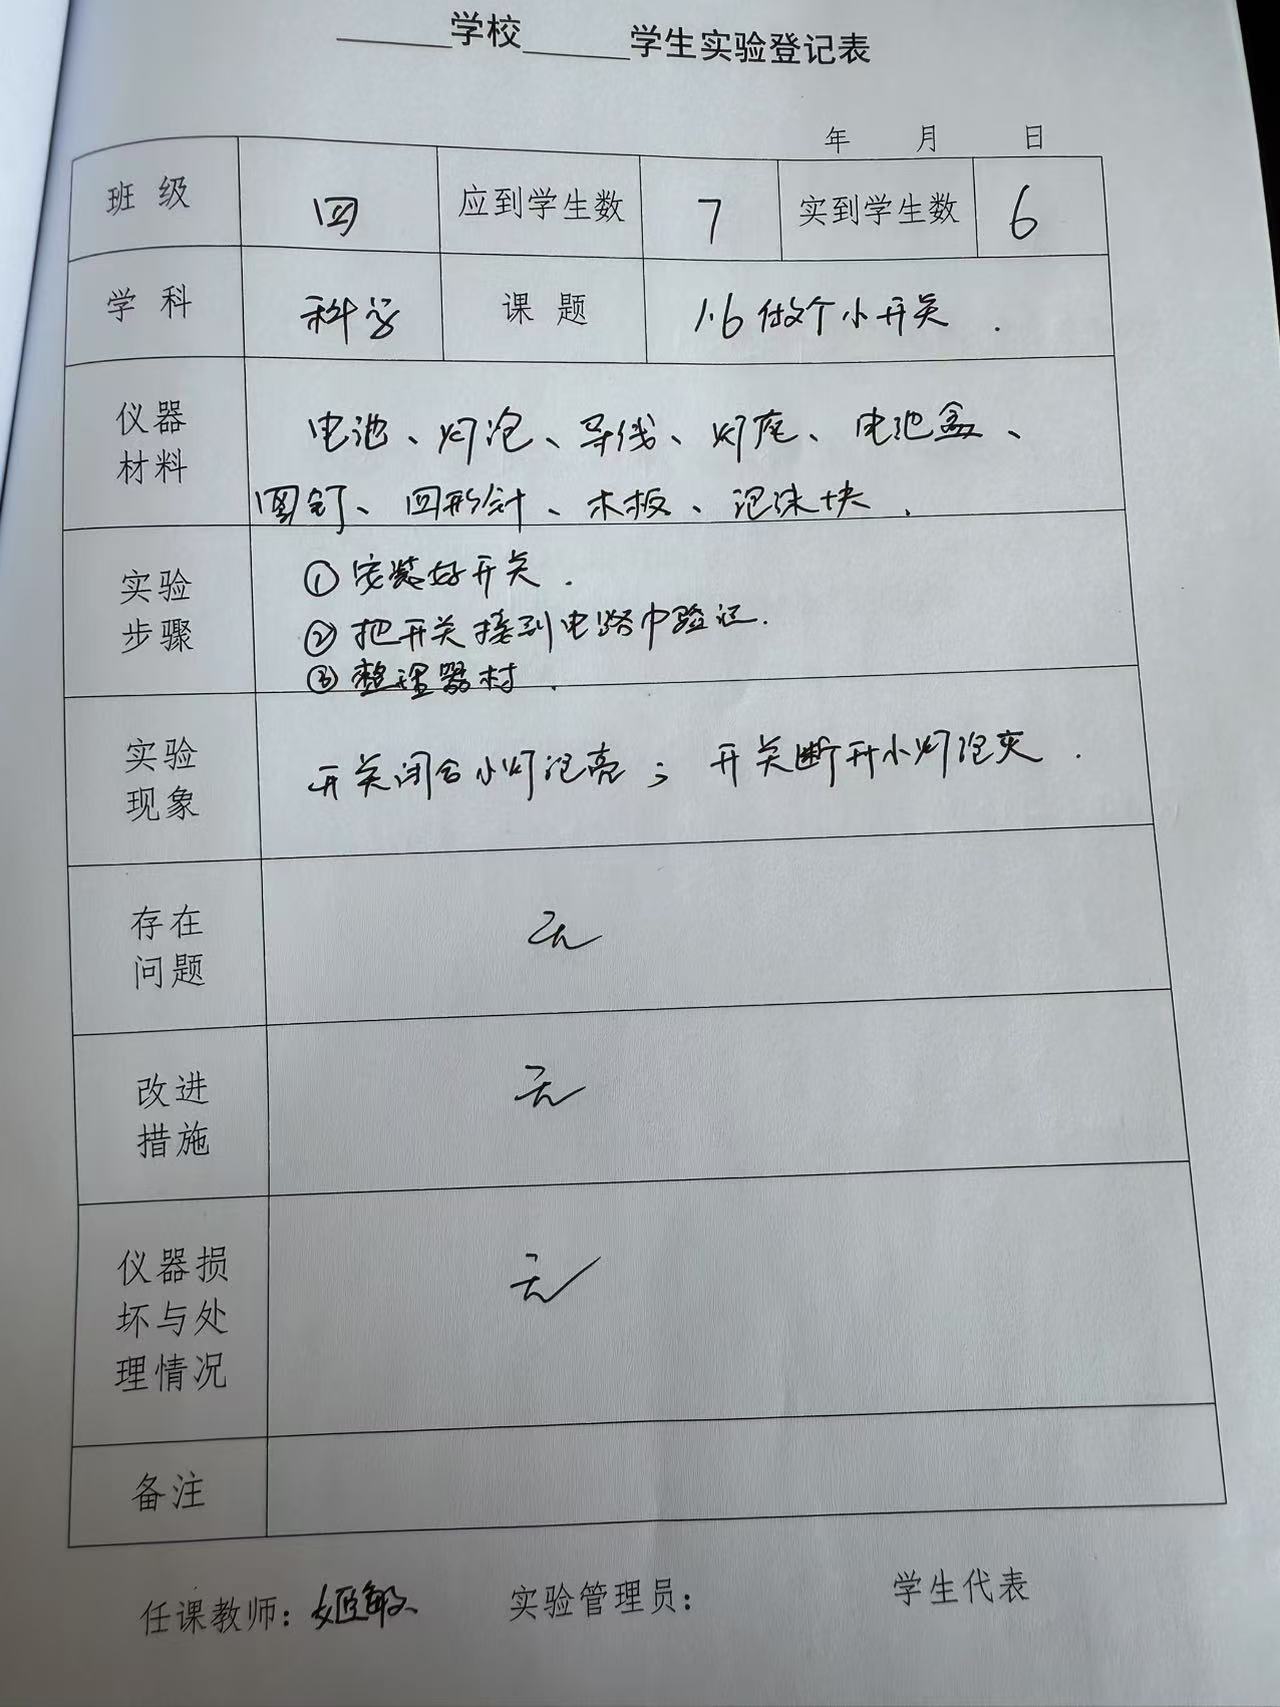 ______学校______学生实验登记表
年 月 日
班 级 四 应到学生数 7 实到学生数 6
学 科 科学 课 题 1.6做个小开关.
仪器
材料
电池、灯泡、导线、灯座、电池盒、
图钉、回形针、木板、泡沫块.
实验
步骤
①安装好开关.
②把开关接到电路中验证.
③整理器材.
实验
现象
开关闭合小灯泡亮;开关断开小灯泡灭.
存在
问题
无
改进
措施
无
仪器损
坏与处
理情况
无
备注
任课教师:姬敏 实验管理员: 学生代表